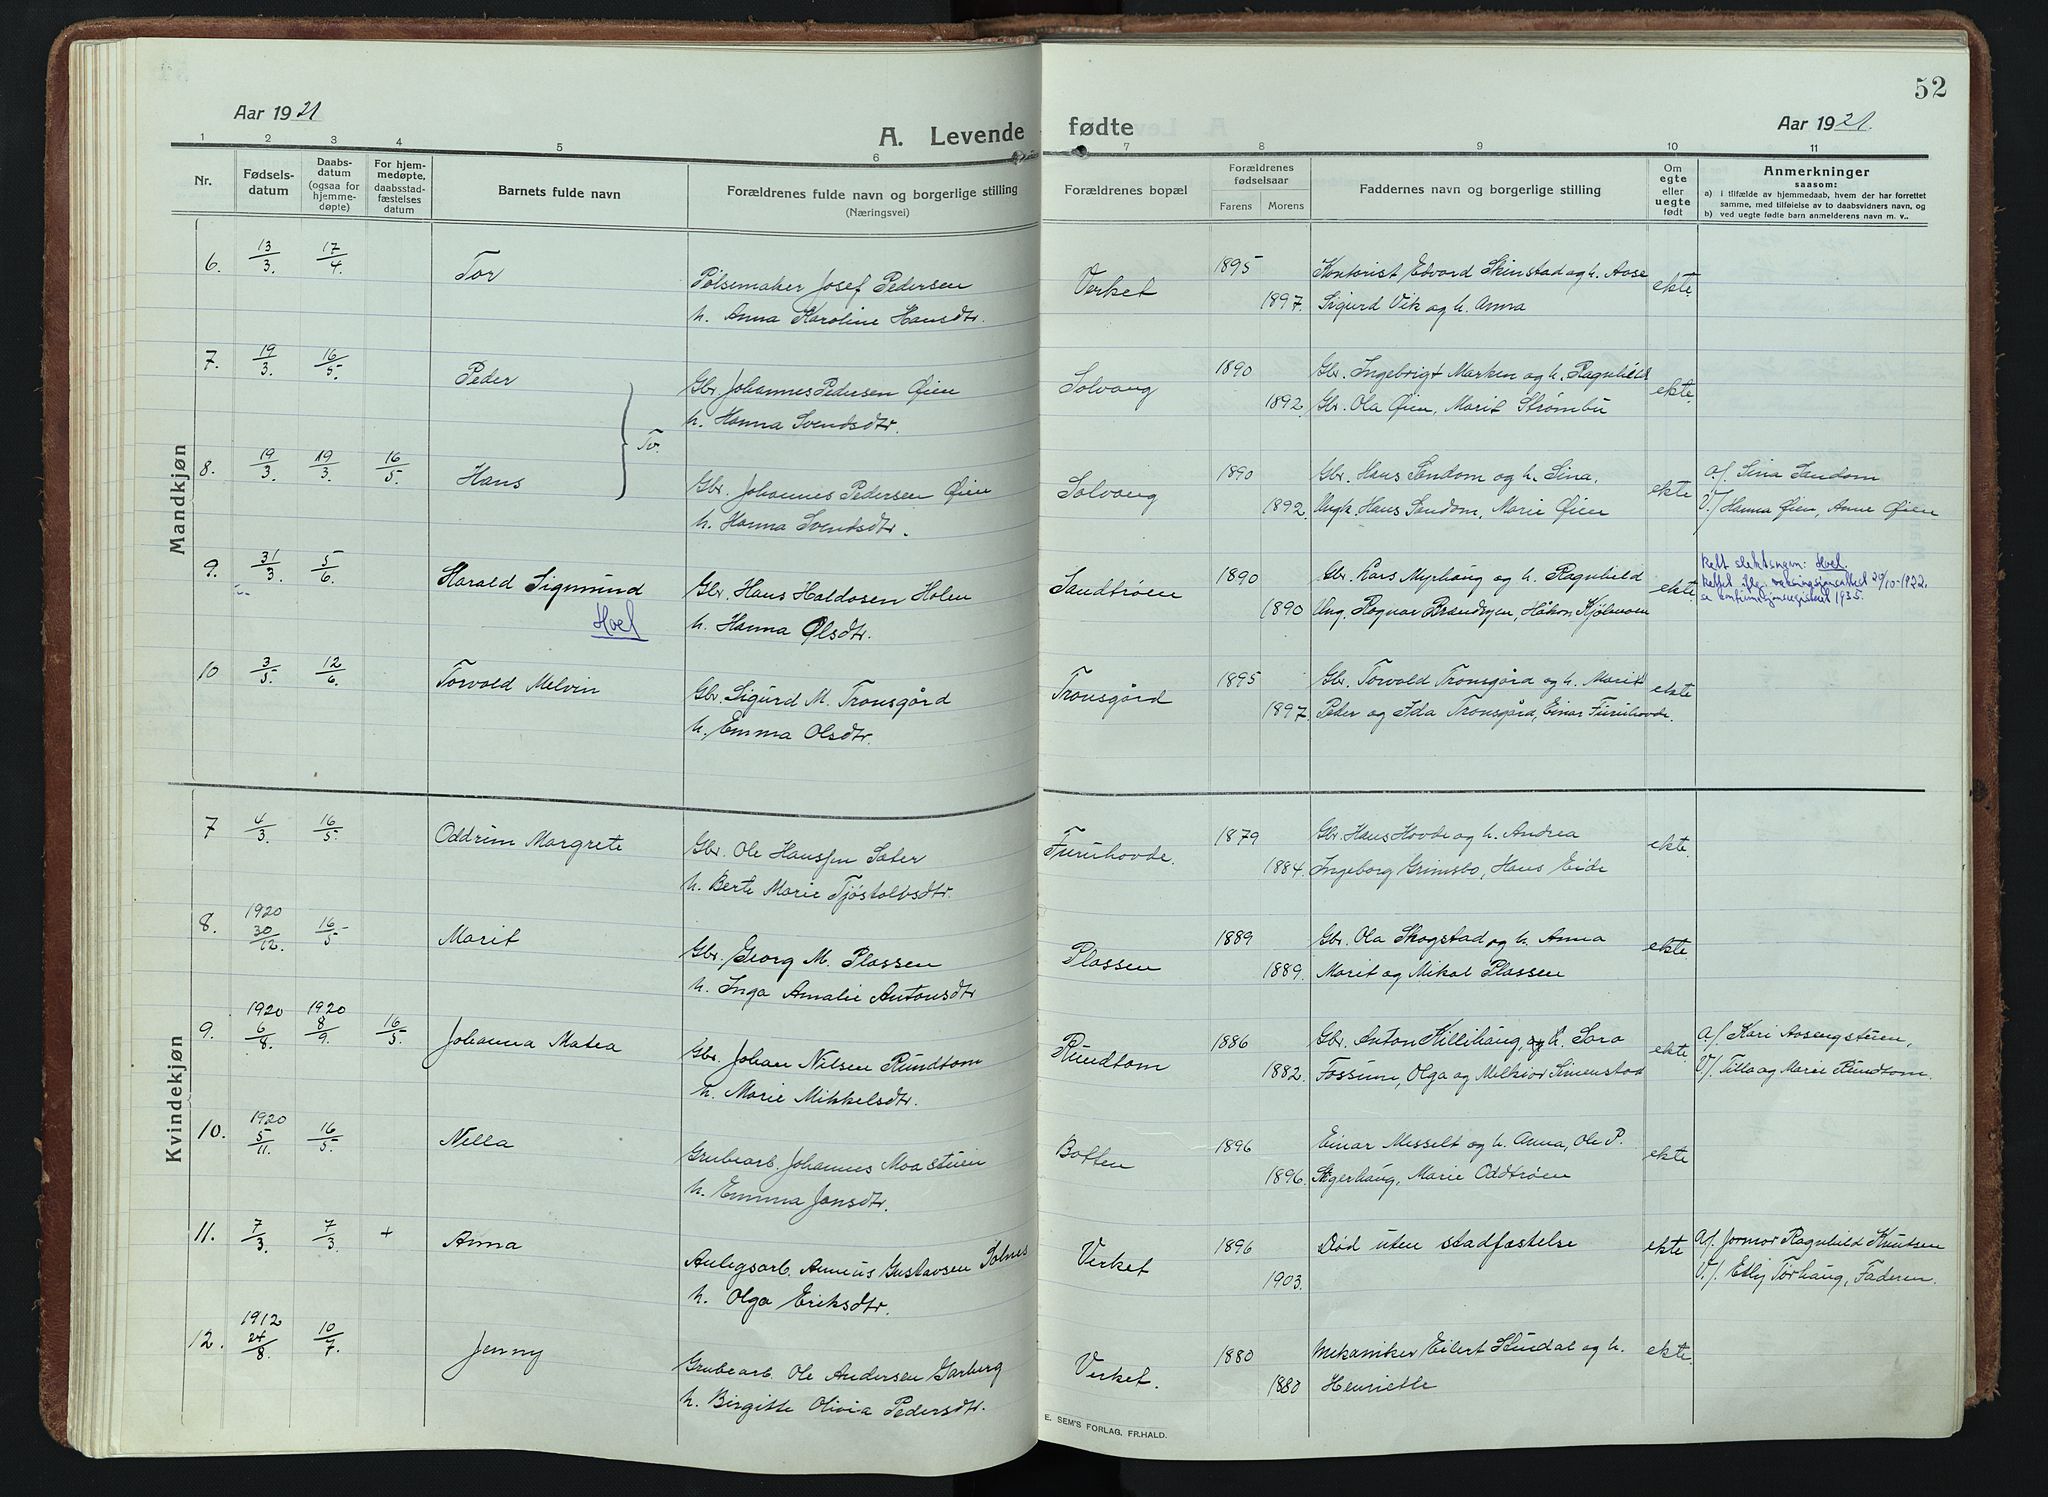 52
Aar 1921
A. Levende fødte
Aar 1921.
1 2 3 4 5 6 7 8 9 10 11
Nr.
Fødselsdatum
Daabsdatum (ogsaa for hjemmedøpte)
For hjemmedøpte, daabsstadfæstelses datum
Barnets fulde navn
Forældrenes fulde navn og borgerlige stilling
(Næringsvei)
Forældrenes bopæl
Forældrenes fødselsaar
Farens Morens
Faddernes navn og borgerlige stilling
Om egte eller uegte født
Anmerkninger
saasom:
a) i tilfælde av hjemmedaab, hvem der har forrettet
samme, med tilføielse av to daabsvidners navn, og
b) ved uegte fødte barn anmelderens navn m. v..
Mandkjøn
6. 13/3. 17/4. Tor Pølsemaker Josef Pedersen Verket 1895 Kontorist Edvard Skinstad og h. Aase ekte.
h. Anna Karoline Hansdtr. 1897. Sigurd Vik og h. Anna
7. 19/3. 16/5. Peder Gbr. Johannes Pedersen Øien Solvang 1890 Gbr. Ingebrigt Marken og h. Ragnhild ekte.
h. Hanna Svendsdtr. 1892. Gbr. Ola Øien, Marit Strømbu
Tv.
8. 19/3. 19/3. 16/5. Hans Gbr. Johannes Pedersen Øien Solvang 1890 Gbr. Hans Sandom og h. Sina, ekte a/. Sina Sandom
h. Hanna Svendsdtr. 1892. Ungk. Hans Sandom, Marie Øien V/. Hanna Øien, Anne Øien
9. 31/3. 5/6. Harald Sigmund Gbr. Hans Haldosen Holen Sandtrøen 1890 Gbr. Lars Myrhaug og h. Ragnhild ekte.
Hoel h. Hanna Olsdtr. 1890 Ung. Ragnar Brandvgen, Håkon Kjølmoen
Rett slektsnavn: Hoel.
29/10-1922.
1935.
10 3/5. 12/6. Torvald Melvin Gbr. Sigurd M. Tronsgård Tronsgård 1895 Gbr. Torvald Tronsgård og h. Marit ekte
h. Emma Olsdtr. 1897. Peder og Ida Tronsgård, Einar Furuhovde.
Kvindekjøn
7 4/3. 16/5. Oddrun Margrete Gbr. Ole Hanssen Sæter Furuhovde. 1879 Gbr. Hans Hovde og h. Andrea ekte.
h. Berte Marie Tjøstolvsdtr. 1884. Ingeborg Grimsbo, Hans Eide
8. 1920 30/12. 16/5. Marit Gbr. Georg M. Plassen Plassen 1889 Gbr. Ola Skogstad og h. Anna ekte.
h. Inga Amalie Antonsdtr 1889. Marit og Mikal Plassen
9. 1920 6/8. 1920 8/9. 16/5. Johanna Matea Gbr. Johan Nilsen Rundtom Rundtom 1886 Gbr. Anton Killihaug, og h. Sara ekte. a/. Kari Aasengstuen,
h. Marie Mikkelsdtr. 1882. Fossum, Olga og Melkior Simenstad V/. Tilla og Marie Rundtom.
10. 1920 5/11. 16/5. Nella Grubearb. Johannes Moastuen Botten 1896 Einar Messelt og h. Anna, Ole P. ekte
h. Emma Jonsdtr. 1896. Sigerhaug, Marie Oddtrøen
11. 7/3. 7/3. + Anna Anlegsarb. Annæus Gustavsen Solnes Verket 1896 Død uten stadfæstelse ekte a/. Jormor Ragnhild Knutsen
h. Olga Eriksdtr. 1903. V./. Elly Torhaug, Faderen.
12. 1912 24/8. 10/7. Jenny Grubearb. Ole Andersen Garberg Verket. 1880 Mekaniker Eilert Stundal og h. ekte.
h. Birgitte Olivia Pedersdtr. 1880 Henriette
E. SEM'S FORLAG, FR.HALD.